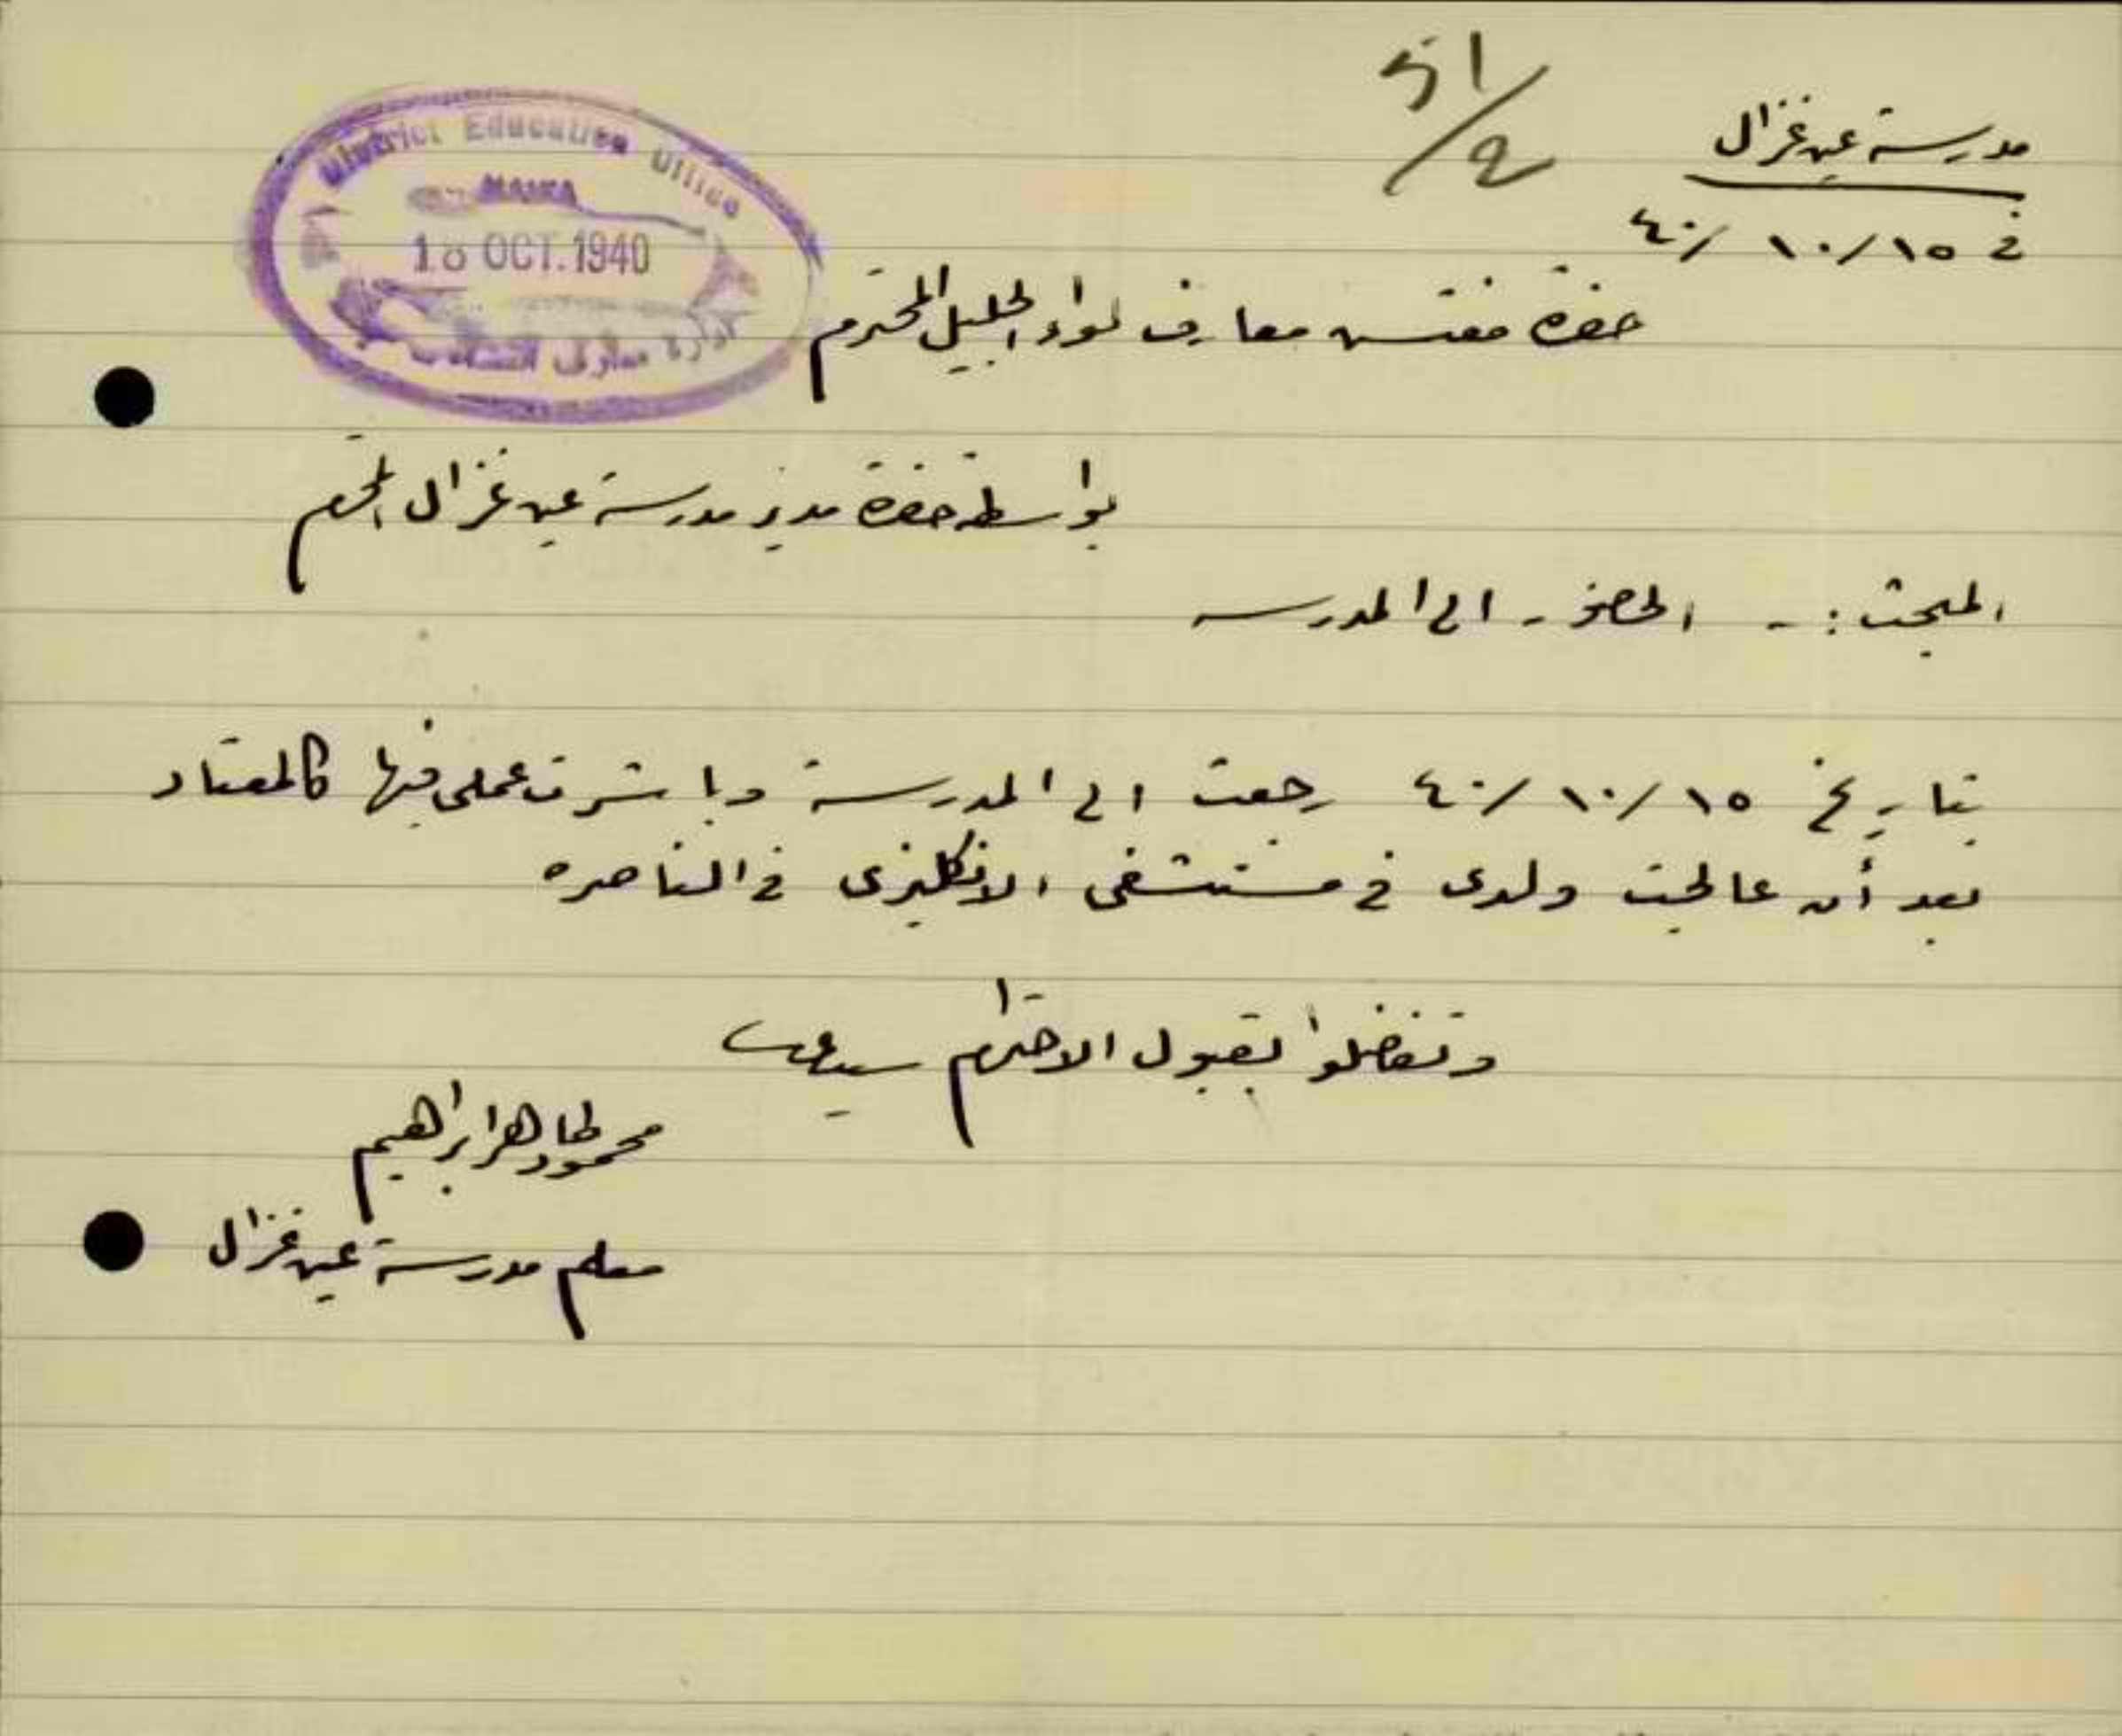 51/2
مدرسة عين غزال
في ١٥/١٠/٤٠
District Education Office
HAIFA
18 OCT. 1940
ادارة معارف
حضرة مفتش معارف لواء الجليل المحترم
بواسطة حضرة مدير مدرسة عين غزال المحترم
المبحث :- الحضور الى المدرسه
بتاريخ ١٥/١٠/٤٠ رجعت الى المدرسة وباشرت عملي فيها كالمعتاد
بعد أن عالجت ولدى في مستشفى الانكليزى في الناصره
وتفضلوا بقبول الاحترام سيدي
محمود طاهر ابراهيم
معلم مدرسة عين غزال